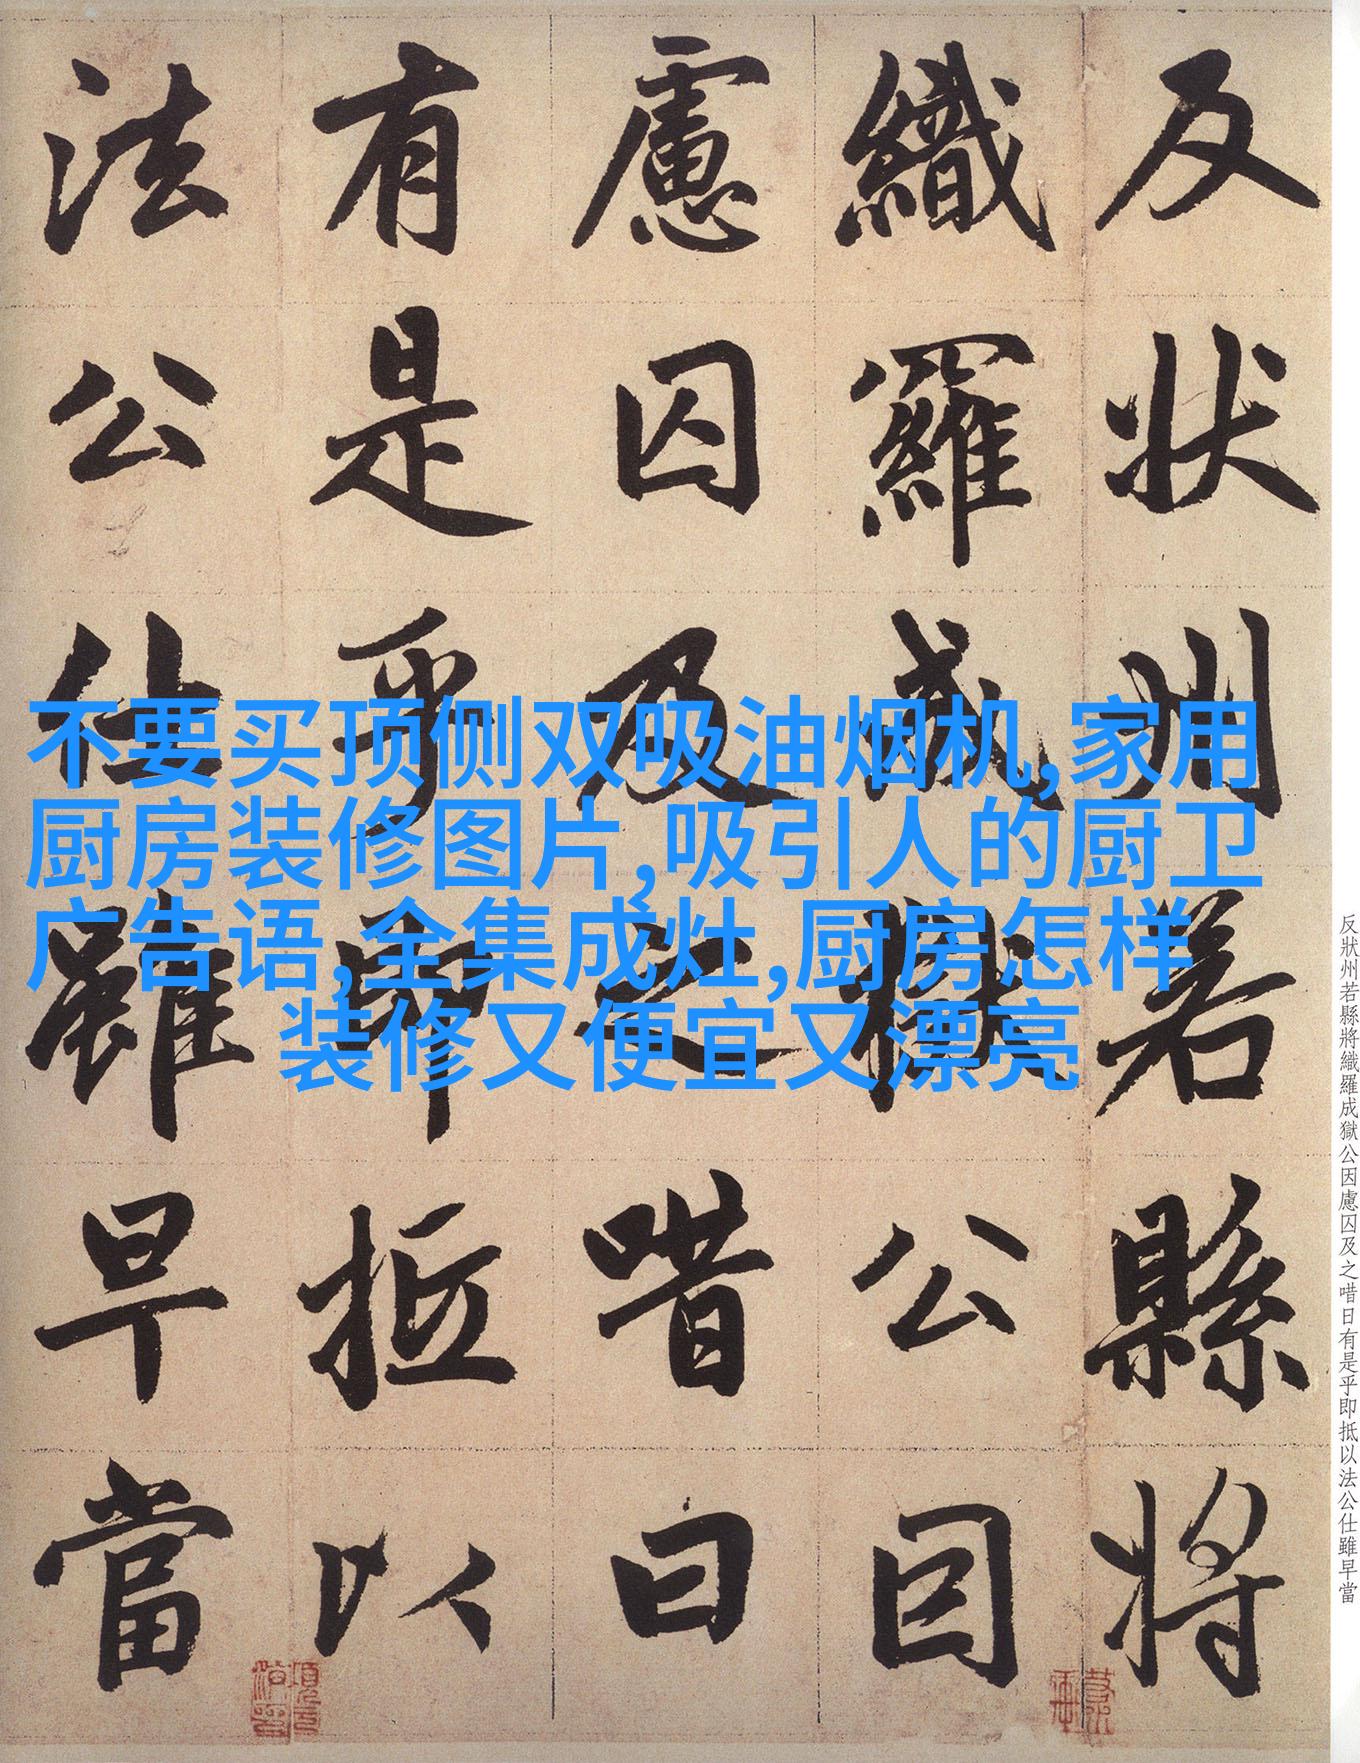 反狀州若縣將
織羅成獄公因
慮囚及之唶曰
有是乎即抵以
法公仕雖早當
不要买顶侧双吸油烟机,家用
厨房装修图片,吸引人的厨卫
广告语,全集成灶,厨房怎样
装修又便宜又漂亮
反狀州若縣將織羅成獄公因慮囚及之唶日有是乎即抵以法公仕雖早當